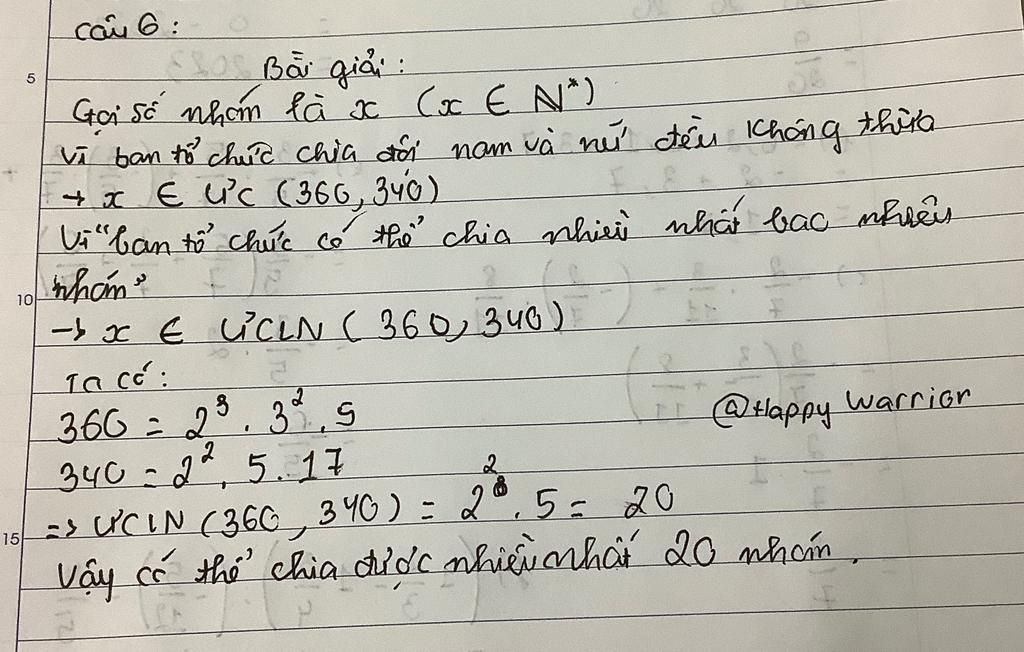 Câu 6:
Bài giải:
5
Gọi số nhóm là x (x ∈ N*)
Vì ban tổ chức chia đội nam và nữ đều không thừa
→ x ∈ ƯC (360, 340)
Vì "ban tổ chức có thể chia nhiều nhất bao nhiêu
10 nhóm"
→ x ∈ ƯCLN (360, 340)
Ta có:
360 = 2³ . 3² . 5
@Happy Warrior
340 = 2² . 5 . 17
=> ƯCLN (360, 340) = 2² . 5 = 20
15
Vậy có thể chia được nhiều nhất 20 nhóm.